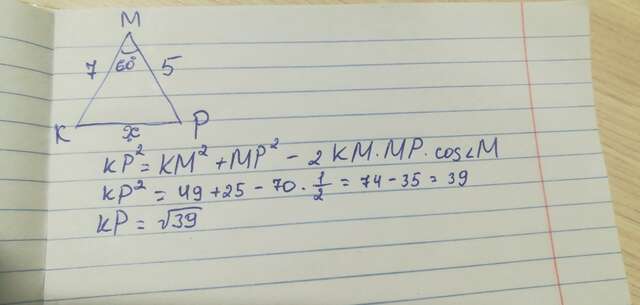 M
7 60° 5
K x P
KP² = KM² + MP² - 2 KM · MP · cos∠M
KP² = 49 + 25 - 70 · 1/2 = 74 - 35 = 39
KP = √39